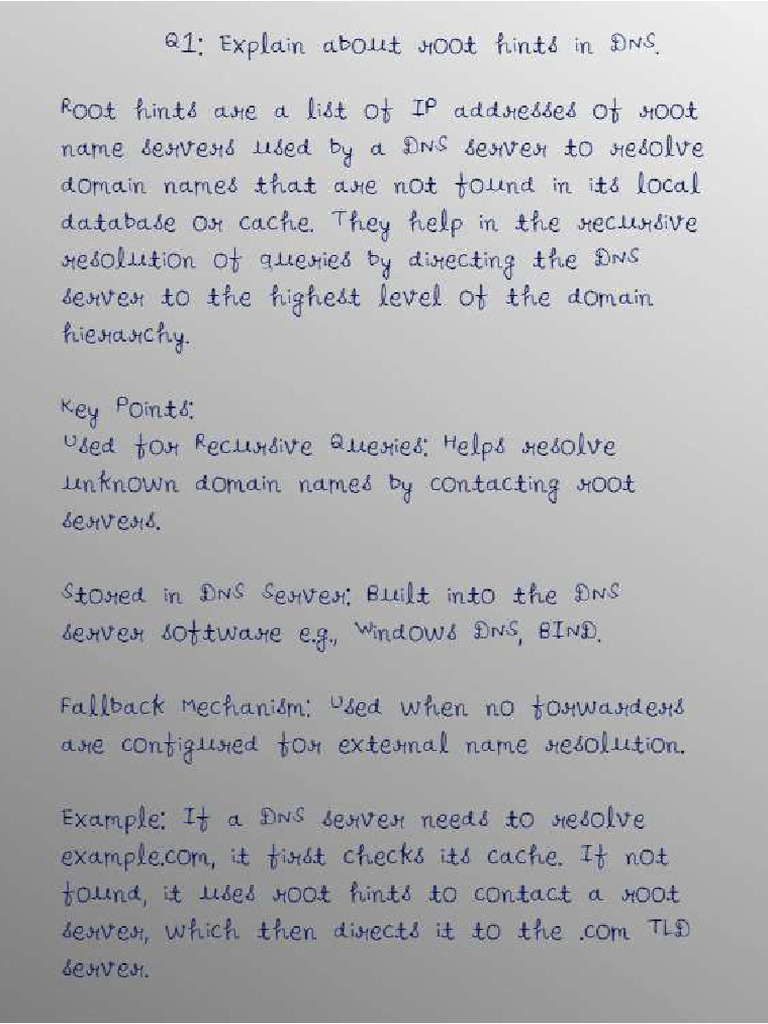 Q1: Explain about root hints in DNS.
Root hints are a list of IP addresses of root
name servers used by a DNS server to resolve
domain names that are not found in its local
database or cache. They help in the recursive
resolution of queries by directing the DNS
server to the highest level of the domain
hierarchy.
Key Points:
Used for Recursive Queries: Helps resolve
unknown domain names by contacting root
servers.
Stored in DNS Server: Built into the DNS
server software e.g., Windows DNS, BIND.
Fallback Mechanism: Used when no forwarders
are configured for external name resolution.
Example: If a DNS server needs to resolve
example.com, it first checks its cache. If not
found, it uses root hints to contact a root
server, which then directs it to the .com TLD
server.